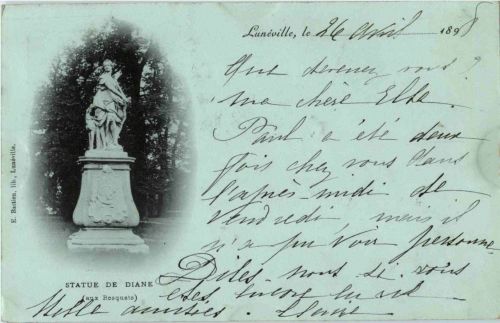 Lunéville, le 26 Avril 1898
Que devenez vous ?
ma chère Elba.
Paul a été deux
fois chez vous dans
l'après-midi de
vendredi mais il
n'a pu voir personne
Dites-nous si vous
êtes encore en
Mille amitiés.
E. Bastien, lib., Lunéville.
STATUE DE DIANE
(aux Bosquets)